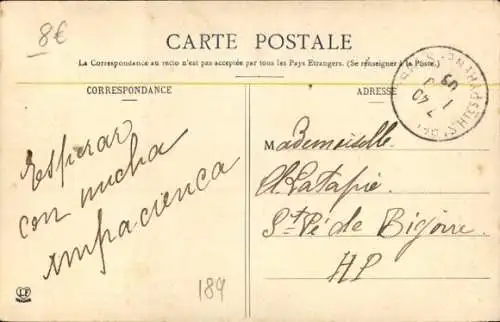 8€
CARTE POSTALE
La Correspondance au recto n'est pas acceptée par tous les Pays Etrangers. (Se renseigner à la Poste).
CORRESPONDANCE
ADRESSE
Esperar
con mucha
impacienca
Mademoiselle
Latapie
St Pé de Bigorre
HP
189